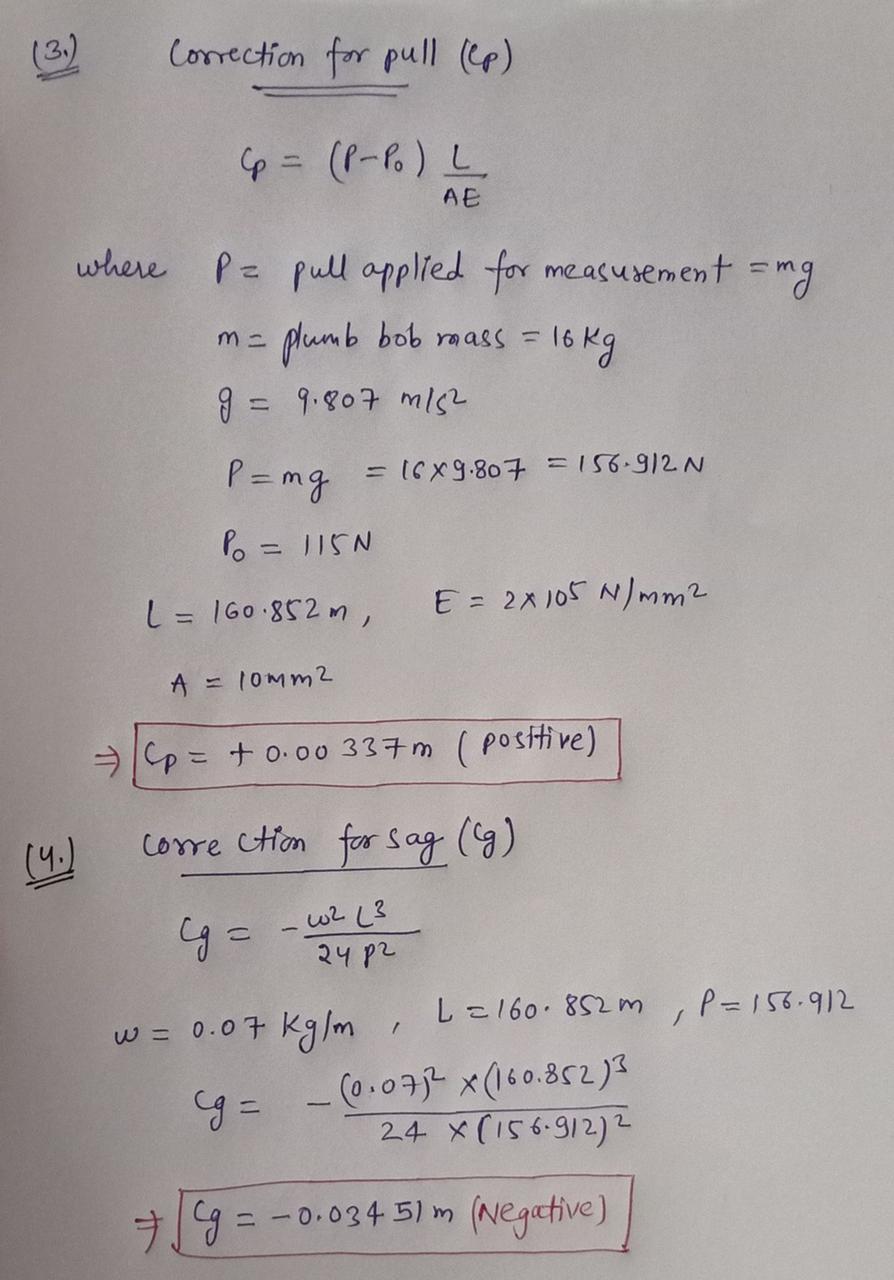 (3.) Correction for pull (Cp)
Cp = (P-P₀) L
AE
where P = pull applied for measurement = mg
m = plumb bob mass = 16 Kg
g = 9.807 m/s²
P = mg = 16 × 9.807 = 156.912 N
P₀ = 115N
L = 160.852 m, E = 2 × 10⁵ N/mm²
A = 10mm²
⇒ Cp = + 0.00 337 m ( positive)
(4.) Corre ction for sag (Cg)
Cg = - w² L³
24 P²
w = 0.07 Kg/m , L = 160.852 m , P = 156.912
Cg = - (0.07)² × (160.852)³
24 × (156.912)²
⇒ Cg = -0.034 51 m (Negative)